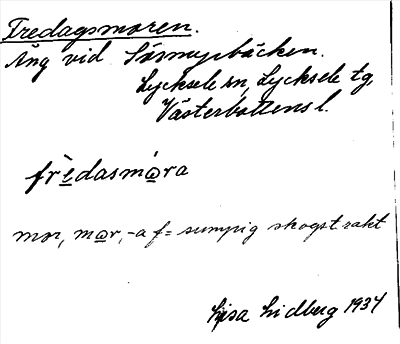 Fredagsmoren.
Äng vid Sörmyrbäcken.
Lycksele sn, Lycksele tg,
Västerbottens l.
frèdasmó̱ra
mor, mo̱r, -a f = sumpig skogstrakt
Lisa Lidberg 1934